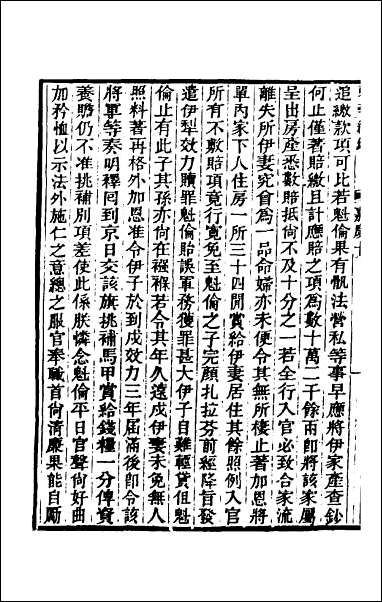 追繳款項可比若魁倫果有骫法營私等事早應將伊家產查鈔
何止僅著賠繳且計應賠之項爲數十萬二千餘兩卽將該家屬
呈出房產悉數賠抵尚不及十分之一若全行入官必致合家流
離失所伊妻究曾爲一品命婦亦未便令其無所棲止著加恩將
單內家下人住房一所三十四間賞給伊妻居住其餘照例入官
所有不敷賠項竟行寬免至魁倫之子完顏扎拉芬前經降旨發
遣伊犁效力贖罪魁倫貽誤軍務獲罪甚大伊子自難輕貸但魁
倫止有此子其孫亦尚在襁褓若令其年久遠戍伊妻未免無人
照料著再格外加恩准令伊子於到戍效力三年屆滿後卽令該
將軍等奏明釋回到京日交該旗挑補馬甲賞給錢糧一分俾資
養贍仍不准挑補別項差使此係朕憐念魁倫平日官聲尚好曲
加矜恤以示法外施仁之意總之服官奉職首尚清廉果能自勵